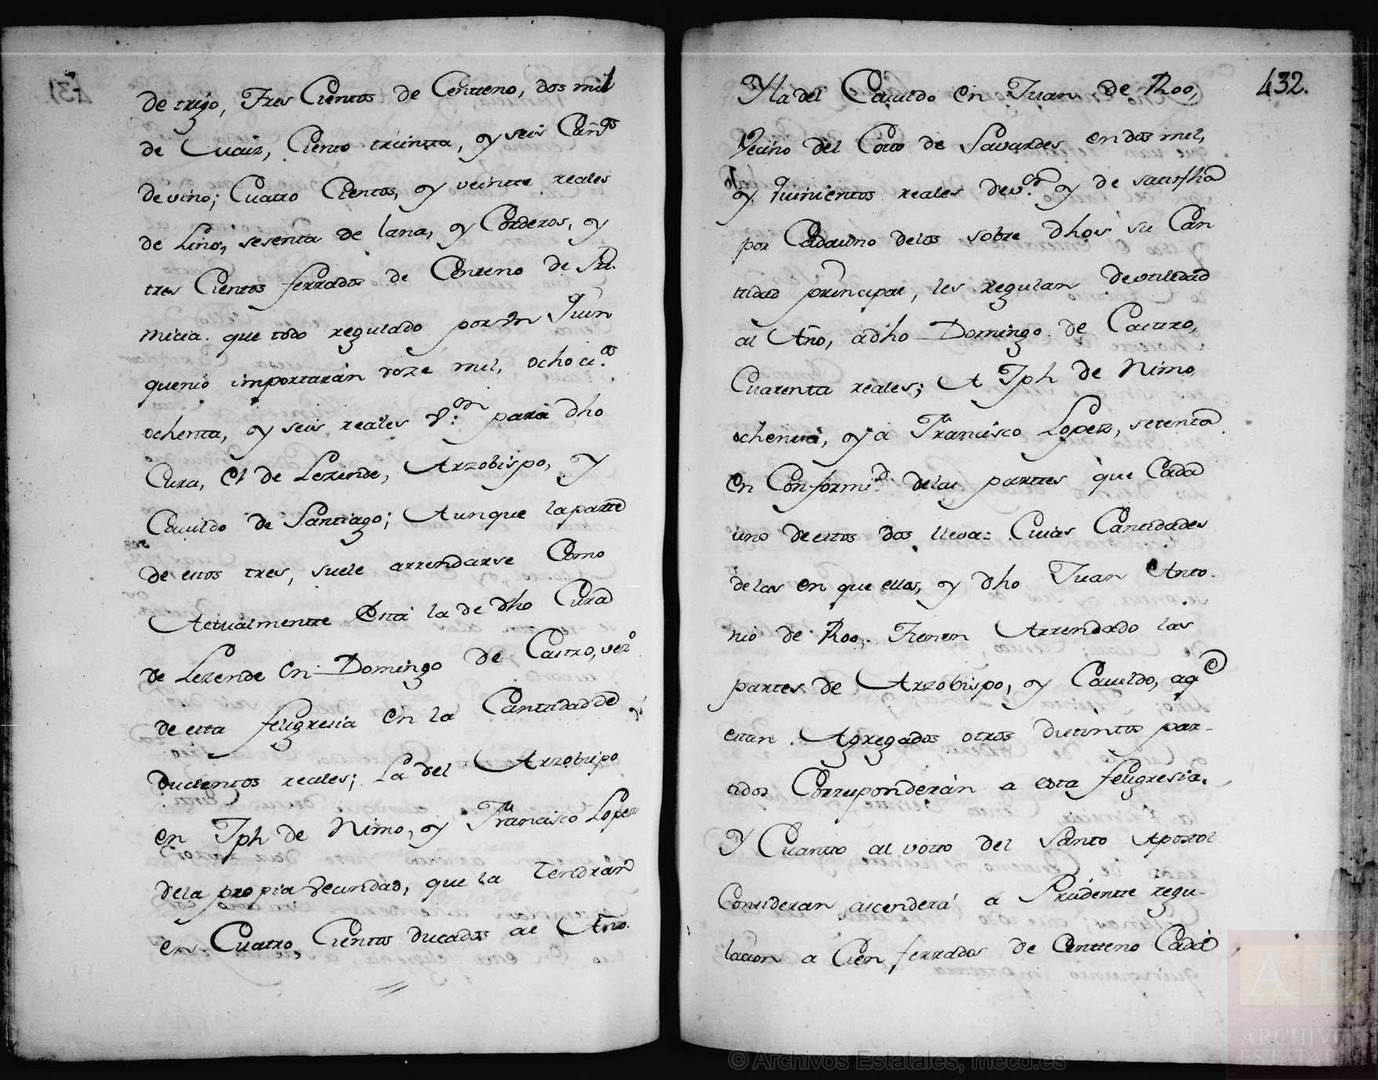 de trigo, Tres Cientos de Centeno, dos mil
de Maiz, Ciento treinta, y seis Cañ.os
de vino; Cuatro Cientos, y veinte reales
de Lino, sesenta de lana, y Corderos, y
tres Cientos ferrados de Centeno de Pri
micia que todo regulado por Un Quin
quenio importarán doze mil, ochoci.os
ochenta, y seis reales v.on para dho
Cura, el de Lezende, Arzobispo, y
Cavildo de Santiago; Aunque la parte
de estos tres, suele arrendarse Como
Actualmente Está la de dho Cura
de Lezende en Domingo de Castro, vez.o
de esta feligresia en la Cantidad de
ducientos reales; La del Arzobispo
en Jph de Nimo, y Fran.cisco Lopez
dela propia vecindad, que la tendrán
en Cuatro Cientos ducados al Año.
432.
Y la del Cavildo en Juan de Roo,
Vecino del Coto de Savardes en dos mil,
y quinientos reales de v.on y de satisfha
por Cadauno delos sobre dhos su Can
tidad principal, les regulan de vtilidad
al Año, a dho Domingo de Castro,
Cuarenta reales; A Jph de Nimo
ochenta, y a Francisco Lopez, setenta
en Conformi.d delas partes que Cada
uno de estos dos lleva: Cuias Cantidades
delas en que ellos, y dho Juan Anto-
nio de Roo, Tienen Arrendado las
partes de Arzobispo, y Cavildo, a q.e
estan Agregados otros distintos par-
tidos Corresponderán a esta feligresia.
Y Cuanto al voto del Santo Apostol
Consideran ascenderá a Prudente regu-
lacion a Cien ferrados de Centeno Cada
© Archivos Estatales, mecd.es
AE
ARCHIVOS
ESTATALES